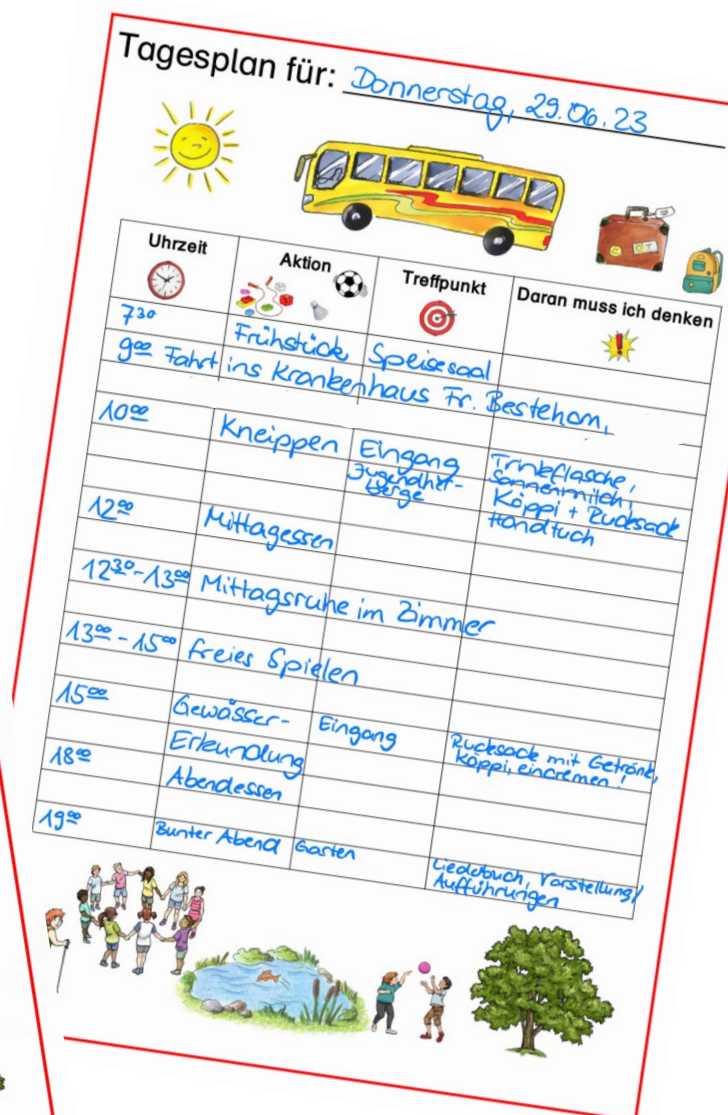 Tagesplan für: Donnerstag, 29.06.23
Uhrzeit Aktion Treffpunkt Daran muss ich denken
7³⁰ Frühstück Speisesaal
9⁰⁰ Fahrt ins Krankenhaus Fr. Bestehorn,
10⁰⁰ Kneippen Eingang Trinkflasche,
Jugendher- Sonnenmilch,
berge Käppi + Rucksack
Handtuch
12⁰⁰ Mittagessen
12³⁰-13⁰⁰ Mittagsruhe im Zimmer
13⁰⁰-15⁰⁰ freies Spielen
15⁰⁰ Gewässer- Eingang Rucksack mit Getränk,
Erkundung Käppi, eincremen!
18⁰⁰ Abendessen
19⁰⁰ Bunter Abend Garten Liederbuch, Vorstellung/
Aufführungen